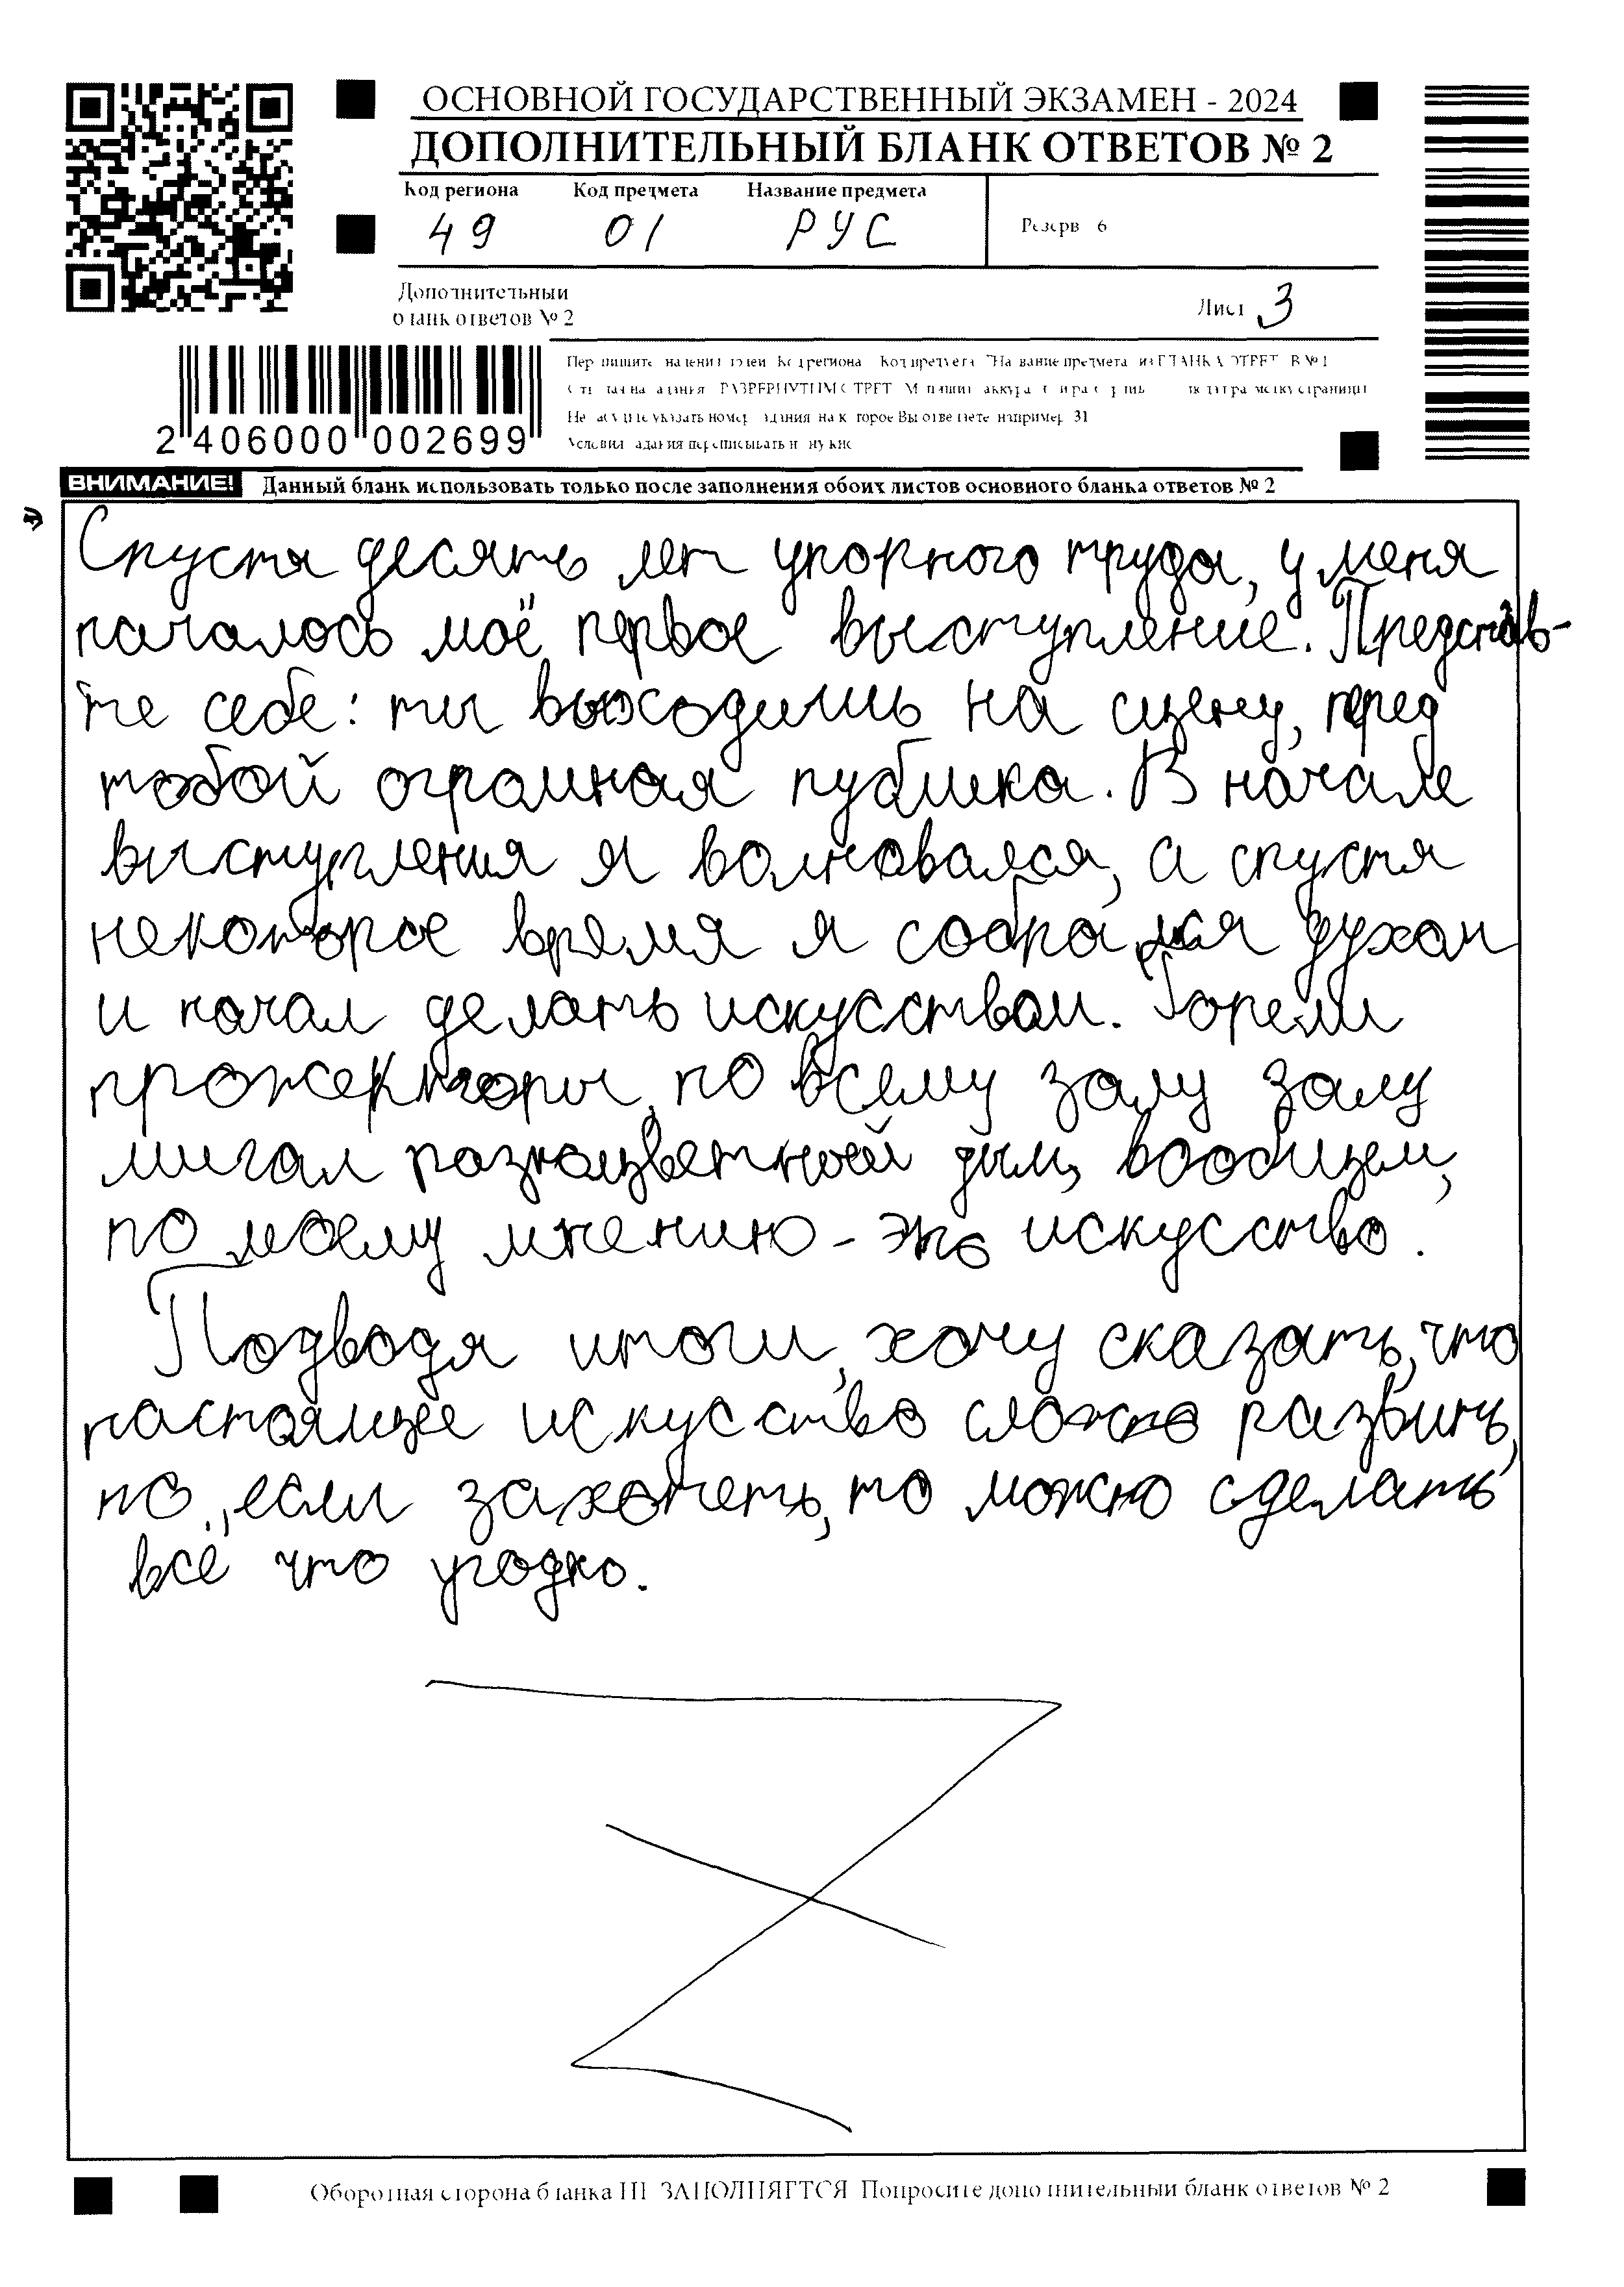 ОСНОВНОЙ ГОСУДАРСТВЕННЫЙ ЭКЗАМЕН - 2024
ДОПОЛНИТЕЛЬНЫЙ БЛАНК ОТВЕТОВ № 2
Код региона Код предмета Название предмета
49 01 РУС
Резерв 6
Дополнительный
бланк ответов № 2
Лист 3
2 406000 002699
ВНИМАНИЕ! Данный бланк использовать только после заполнения обоих листов основного бланка ответов № 2
Спустя десять лет упорного труда, у меня
началось моё первое выступление. Представ-
те себе: ты выходишь на сцену, перед
тобой огромная публика. В начале
выступления я волновался, а спустя
некоторое время я собрался духом
и начал делать искусством. Горели
прожекторы, по всему залу залу
мигал разноцветной дым, вообщем,
по моему мнению - это искусство.
Подводя итоги, хочу сказать, что
настоящее искусство сложно развить,
но, если захотеть, то можно сделать
всё что угодно.
Оборотная сторона бланка НЕ ЗАПОЛНЯЕТСЯ Попросите дополнительный бланк ответов № 2